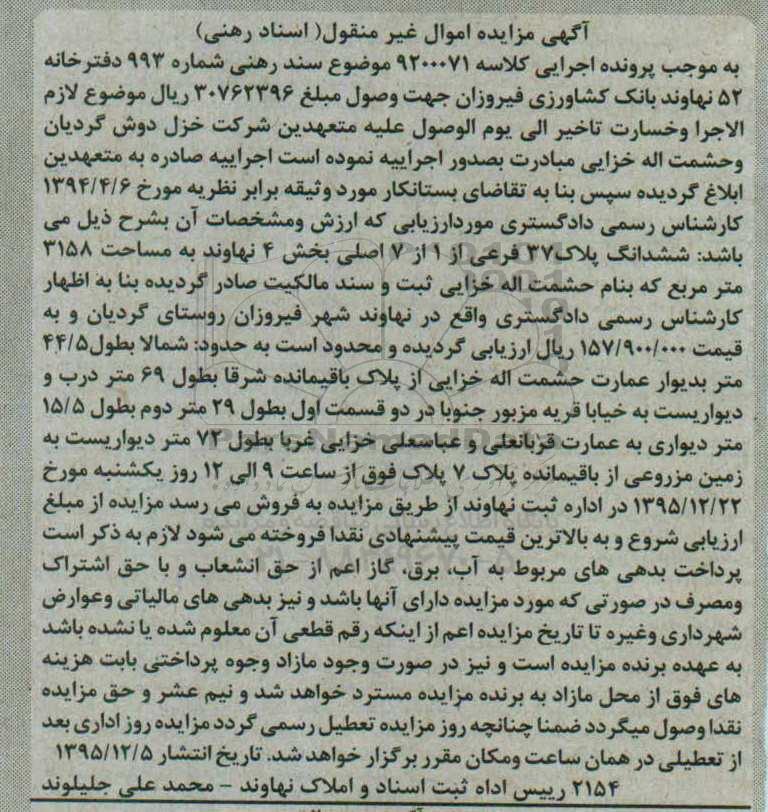 آگهی مزایده اموال غیر منقول( اسناد رهنی)
به موجب پرونده اجرایی کلاسه ۹۲۰۰۰۷۱ موضوع سند رهنی شماره ۹۹۳ دفترخانه
۵۲ نهاوند بانک کشاورزی فیروزان جهت وصول مبلغ ۳۰۷۶۲۳۹۶ ریال موضوع لازم
الاجرا وخسارت تاخیر الی یوم الوصول علیه متعهدین شرکت خزل دوش گردیان
وحشمت اله خزایی مبادرت بصدور اجراییه نموده است اجراییه صادره به متعهدین
ابلاغ گردیده سپس بنا به تقاضای بستانکار مورد وثیقه برابر نظریه مورخ ۱۳۹۴/۴/۶
کارشناس رسمی دادگستری موردارزیابی که ارزش ومشخصات آن بشرح ذیل می
باشد: ششدانگ پلاک۳۷ فرعی از ۱ از ۷ اصلی بخش ۴ نهاوند به مساحت ۳۱۵۸
متر مربع که بنام حشمت اله خزایی ثبت و سند مالکیت صادر گردیده بنا به اظهار
کارشناس رسمی دادگستری واقع در نهاوند شهر فیروزان روستای گردیان و به
قیمت ۱۵۷/۹۰۰/۰۰۰ ریال ارزیابی گردیده و محدود است به حدود: شمالا بطول۴۴/۵
متر بدیوار عمارت حشمت اله خزایی از پلاک باقیمانده شرقا بطول ۶۹ متر درب و
دیواریست به خیابا قریه مزبور جنوبا در دو قسمت اول بطول ۲۹ متر دوم بطول ۱۵/۵
متر دیواری به عمارت قربانعلی و عباسعلی خزایی غربا بطول ۷۲ متر دیواریست به
زمین مزروعی از باقیمانده پلاک ۷ پلاک فوق از ساعت ۹ الی ۱۲ روز یکشنبه مورخ
۱۳۹۵/۱۲/۲۲ در اداره ثبت نهاوند از طریق مزایده به فروش می رسد مزایده از مبلغ
ارزیابی شروع و به بالاترین قیمت پیشنهادی نقدا فروخته می شود لازم به ذکر است
پرداخت بدهی های مربوط به آب، برق، گاز اعم از حق انشعاب و با حق اشتراک
ومصرف در صورتی که مورد مزایده دارای آنها باشد و نیز بدهی های مالیاتی وعوارض
شهرداری وغیره تا تاریخ مزایده اعم از اینکه رقم قطعی آن معلوم شده یا نشده باشد
به عهده برنده مزایده است و نیز در صورت وجود مازاد وجوه پرداختی بابت هزینه
های فوق از محل مازاد به برنده مزایده مسترد خواهد شد و نیم عشر و حق مزایده
نقدا وصول میگردد ضمنا چنانچه روز مزایده تعطیل رسمی گردد مزایده روز اداری بعد
از تعطیلی در همان ساعت ومکان مقرر برگزار خواهد شد. تاریخ انتشار ۱۳۹۵/۱۲/۵
۲۱۵۴ رییس اداه ثبت اسناد و املاک نهاوند - محمد علی جلیلوند